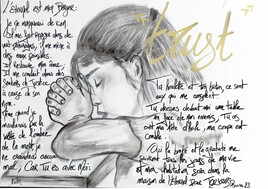 L'Éternel est mon Berger:
je ne manquerai de rien
Il me fait reposer dans de
verts pâturages, Il me mène à
des eaux paisibles.
Il restaure mon âme,
Il me conduit dans des
sentiers de Justice
à cause de son
Nom.
Même quand je
marcherais dans la
Vallée de l'ombre
de la mort je
ne craindrai aucun
mal, Car Tu es avec Moi:
trust
ta houlette et ton bâton, ce sont
eux qui me consolent
Tu dresses devant moi une table
en face de mes ennemis, Tu as
oint ma tête d'huile, ma coupe est
comble
Oui la bonté et la gratuité me
suivront tous les jours de ma vie
et mon habitation sera dans la
maison de l'Éternel pour toujours
Psaume 23